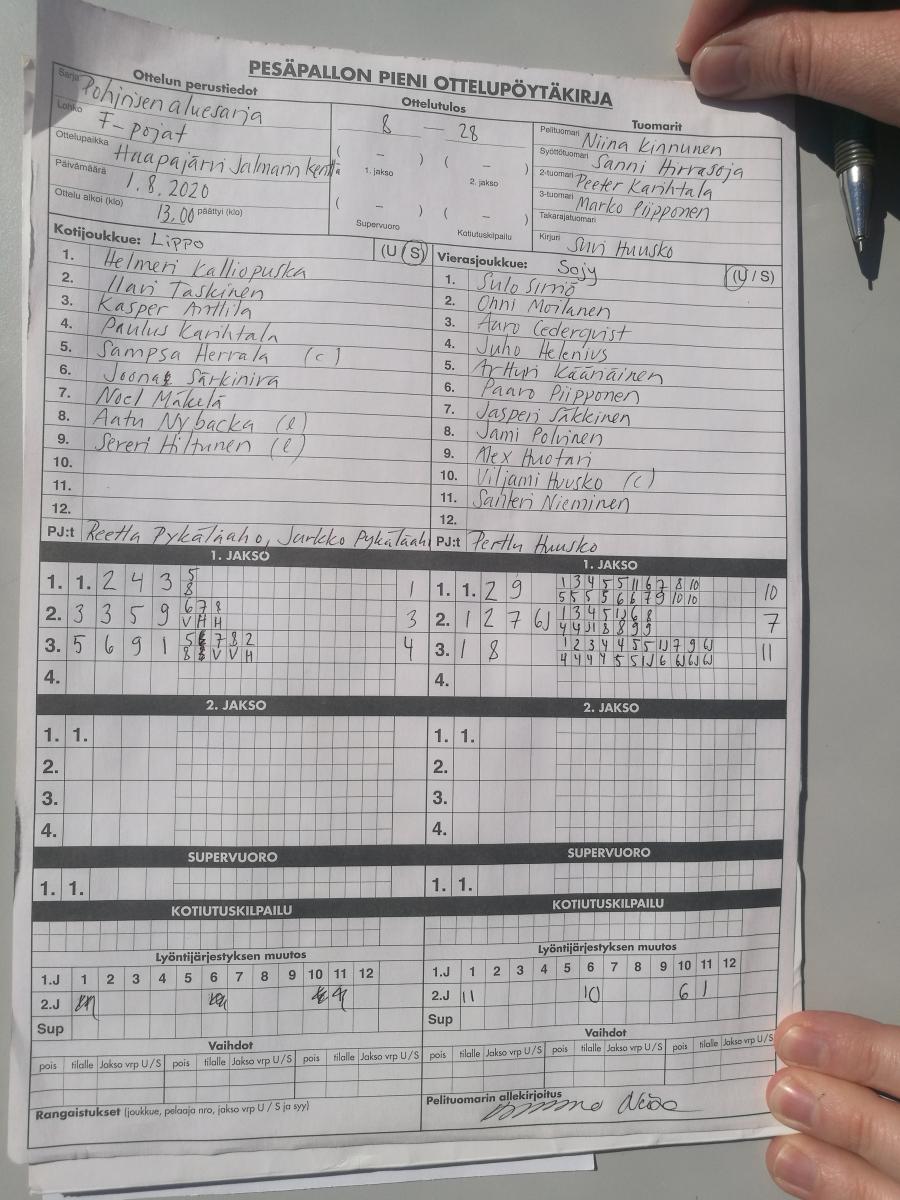 PESÄPALLON PIENI OTTELUPÖYTÄKIRJA
Ottelun perustiedot
Sarja Pohjoisen aluesarja
Lohko F-pojat
Ottelupaikka Haapajärvi Jalmarin kenttä
Päivämäärä 1.8.2020
Ottelu alkoi (klo) 13.00 päättyi (klo)
Ottelutulos
8 — 28
( – ) ( – )
1. jakso 2. jakso
( – ) ( – )
Supervuoro Kotiutuskilpailu
Tuomarit
Pelituomari Niina Kinnunen
Syöttötuomari Sanni Hirvasoja
2-tuomari Peeter Karihtala
3-tuomari Marko Piipponen
Takarajatuomari
Kirjuri Suvi Huusko
Kotijoukkue: Lippo (U / S)
1. Helmeri Kalliopuska
2. Ilari Taskinen
3. Kasper Anttila
4. Paulus Karihtala
5. Sampsa Herrala (c)
6. Joonas Särkiniva
7. Noel Mäkelä
8. Aatu Nybacka (l)
9. Severi Hiltunen (l)
10.
11.
12.
PJ:t Reetta Pykäläaho, Jarkko
Vierasjoukkue: Sojy (U / S)
1. Sulo Simiö
2. Onni Moilanen
3. Auro Cederqvist
4. Juho Helenius
5. Artturi Kääriäinen
6. Paavo Piipponen
7. Jasperi Säkkinen
8. Jami Polvinen
9. Alex Huotari
10. Viljami Huusko (c)
11. Santeri Nieminen
12.
PJ:t Perttu Huusko
1. JAKSO
1. 1. 2 4 3 5 1
8
2. 3 3 5 9 6 7 8 3
V H H
3. 5 6 9 1 5 7 8 2 4
8 V V H
4.
1. JAKSO
1. 1. 2 9 1 3 4 5 5 11 6 7 8 10 10
5 5 5 5 6 6 7 9 10 10
2. 1 2 7 7
3. 1 8 11
4.
2. JAKSO
1. 1.
2.
3.
4.
2. JAKSO
1. 1.
2.
3.
4.
SUPERVUORO
1. 1.
SUPERVUORO
1. 1.
KOTIUTUSKILPAILU
KOTIUTUSKILPAILU
Lyöntijärjestyksen muutos
1.J 1 2 3 4 5 6 7 8 9 10 11 12
2.J
Sup
Lyöntijärjestyksen muutos
1.J 1 2 3 4 5 6 7 8 9 10 11 12
2.J 11 10 6 1
Sup
Vaihdot
pois tilalle Jakso vrp U/S pois tilalle Jakso vrp U/S pois tilalle Jakso vrp U/S
Vaihdot
pois tilalle Jakso vrp U/S pois tilalle Jakso vrp U/S pois tilalle Jakso vrp U/S
Rangaistukset (joukkue, pelaaja nro, jakso vrp U / S ja syy)
Pelituomarin allekirjoitus